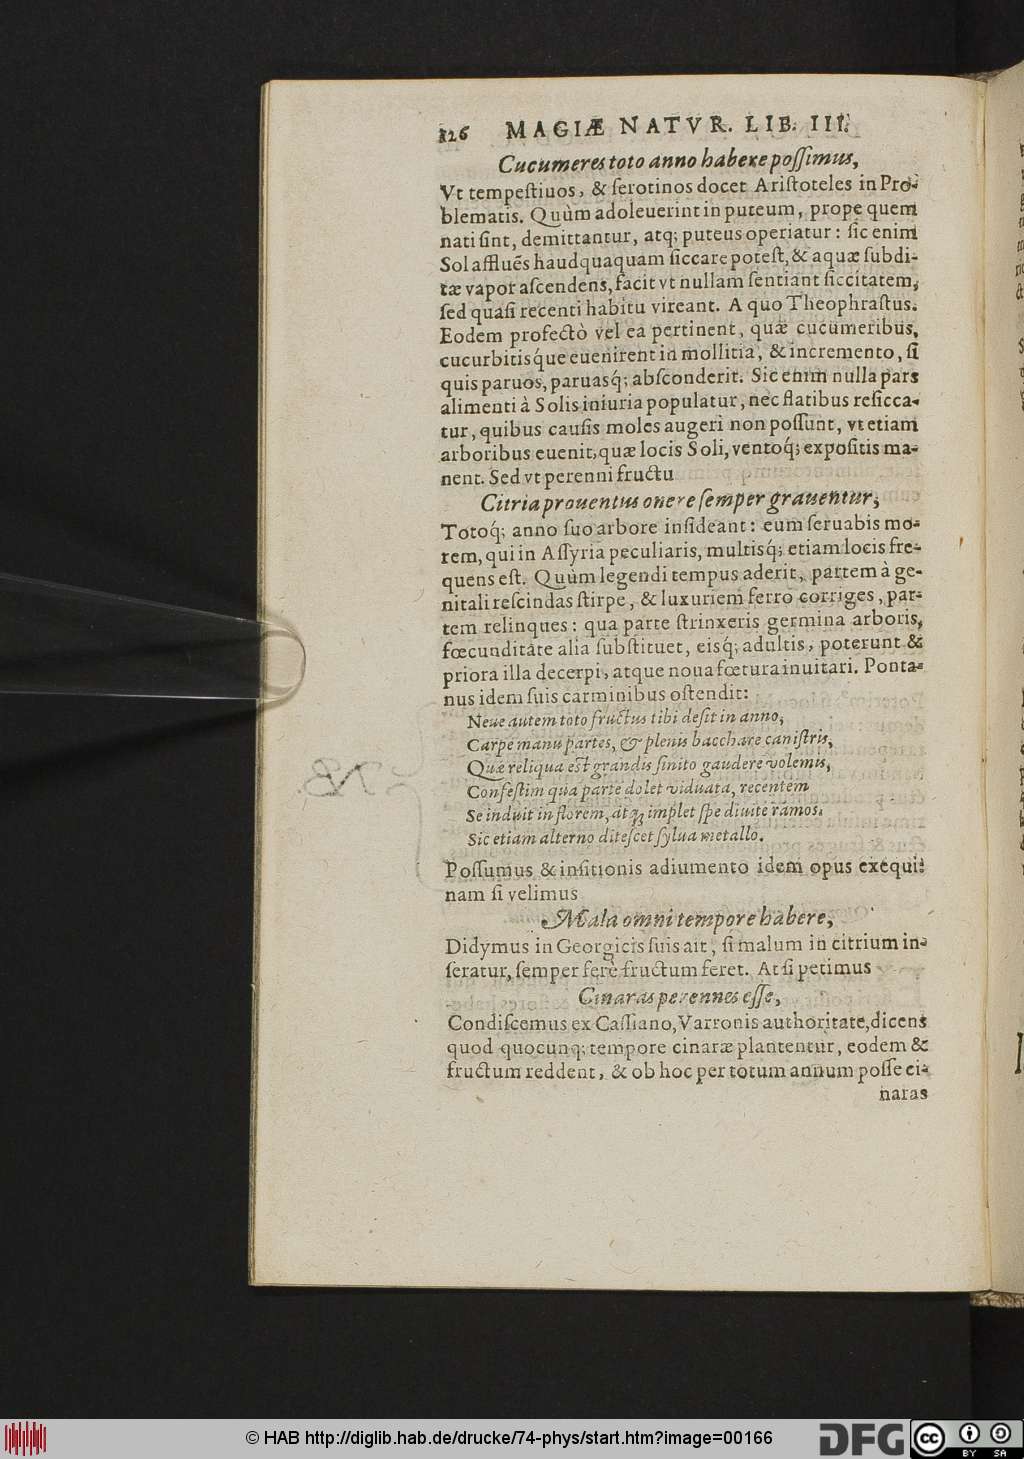 126 MAGIÆ NATVR. LIB. III.
Cucumeres toto anno habere poſſimus,
Vt tempeſtiuos, & ſerotinos docet Ariſtoteles in Pro-
blematis. Quùm adoleuerint in puteum, prope quem
nati ſint, demittantur, atq; puteus operiatur: ſic enim
Sol affluẽs haudquaquam ſiccare poteſt, & aquæ ſubdi-
tæ vapor aſcendens, facit vt nullam ſentiant ſiccitatem,
ſed quaſi recenti habitu vireant. A quo Theophraſtus.
Eodem profectò vel ea pertinent, quæ cucumeribus,
cucurbitisq́ue euenirent in mollitia, & incremento, ſi
quis paruos, paruasq́; abſconderit. Sic enim nulla pars
alimenti à Solis iniuria populatur, nec flatibus reſicca-
tur, quibus cauſis moles augeri non poſſunt, vt etiam
arboribus euenit, quæ locis Soli, ventoq́; expoſitis ma-
nent. Sed vt perenni fructu
Citria prouentus onere ſemper grauentur,
Totoq́; anno ſuo arbore inſideant: eum ſeruabis mo-
rem, qui in Aſſyria peculiaris, multisq́; etiam locis fre-
quens eſt. Quùm legendi tempus aderit, partem à ge-
nitali reſcindas ſtirpe, & luxuriem ferro corriges, par-
tem relinques: qua parte ſtrinxeris germina arboris,
fœcunditate alia ſubſtituet, eisq́; adultis, poterunt &
priora illa decerpi, atque noua fœtura inuitari. Ponta-
nus idem ſuis carminibus oſtendit:
Neue autem toto fructus tibi deſit in anno,
Carpe manu partes, & plenis bacchare caniſtris,
Quæ reliqua eſt grandis ſinito gaudere volemis,
Confeſtim qua parte dolet viduata, recentem
Se induit in florem, atq; implet ſpe diuite ramos.
Sic etiam alterno diteſcet ſylua metallo.
NB.
Poſſumus & inſitionis adiumento idem opus exequi:
nam ſi velimus
Mala omni tempore habere,
Didymus in Georgicis ſuis ait, ſi malum in citrium in-
ſeratur, ſemper ferè fructum feret. At ſi petimus
Cinaras perennes eſſe,
Condiſcemus ex Caſſiano, Varronis authoritate, dicens
quod quocunq; tempore cinaræ plantentur, eodem &
fructum reddent, & ob hoc per totum annum poſſe ci-
naras
© HAB http://diglib.hab.de/drucke/74-phys/start.htm?image=00166
DFG
cc BY SA